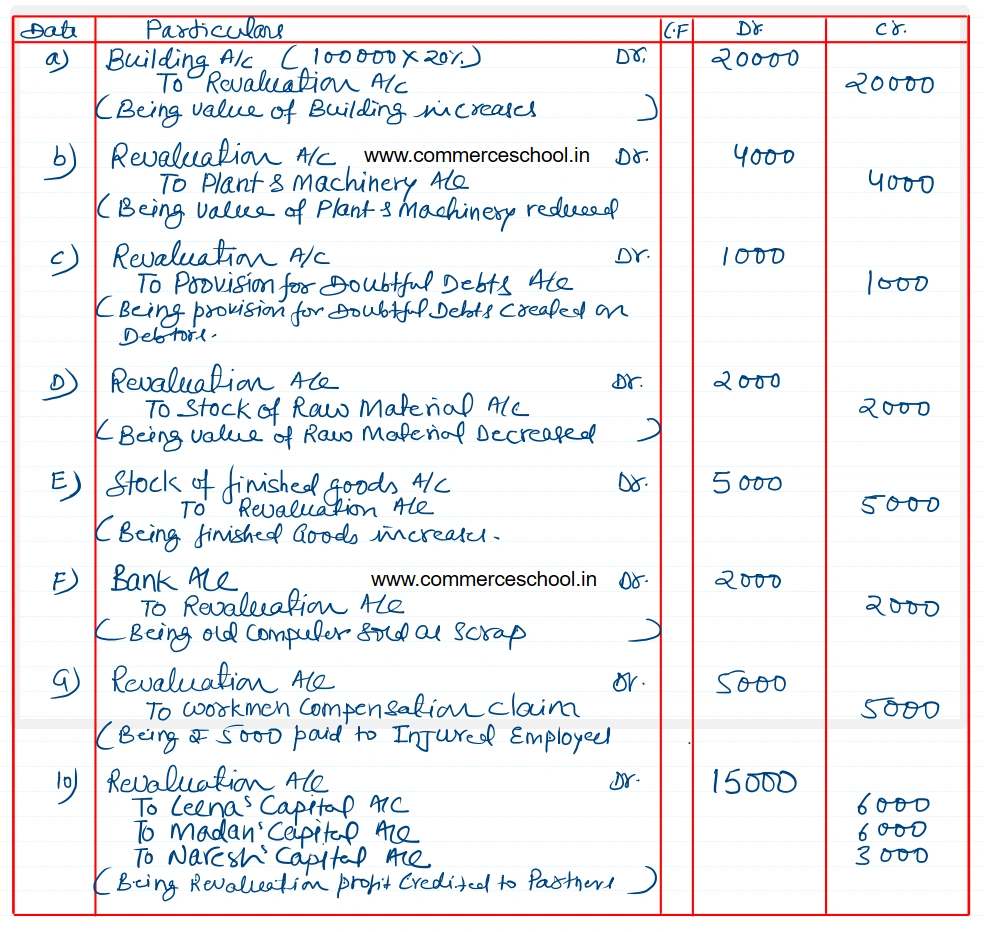 Date Particulars C.F Dr. Cr.
a) Building A/c (100000 x 20%) Dr. 20000
To Revaluation A/c 20000
(Being value of Building increases)
b) Revaluation A/c www.commerceschool.in Dr. 4000
To Plant & Machinery A/c 4000
(Being value of Plant & Machinery reduced
c) Revaluation A/c Dr. 1000
To Provision for Doubtful Debts A/c 1000
(Being provision for Doubtful Debts created on
Debtors.
D) Revaluation A/c Dr. 2000
To Stock of Raw Material A/c 2000
(Being value of Raw Material Decreased)
E) Stock of finished goods A/c Dr. 5000
To Revaluation A/c 5000
(Being finished Goods increases.
F) Bank A/c www.commerceschool.in Dr. 2000
To Revaluation A/c 2000
(Being old Computer Sold as Scrap)
G) Revaluation A/c Dr. 5000
To workmen Compensation claim 5000
(Being ₹ 5000 paid to Injured Employees
10) Revaluation A/c Dr. 15000
To Leena's Capital A/C 6000
To Madan's Capital A/c 6000
To Naresh's Capital A/c 3000
(Being Revaluation profit Credited to Partners)